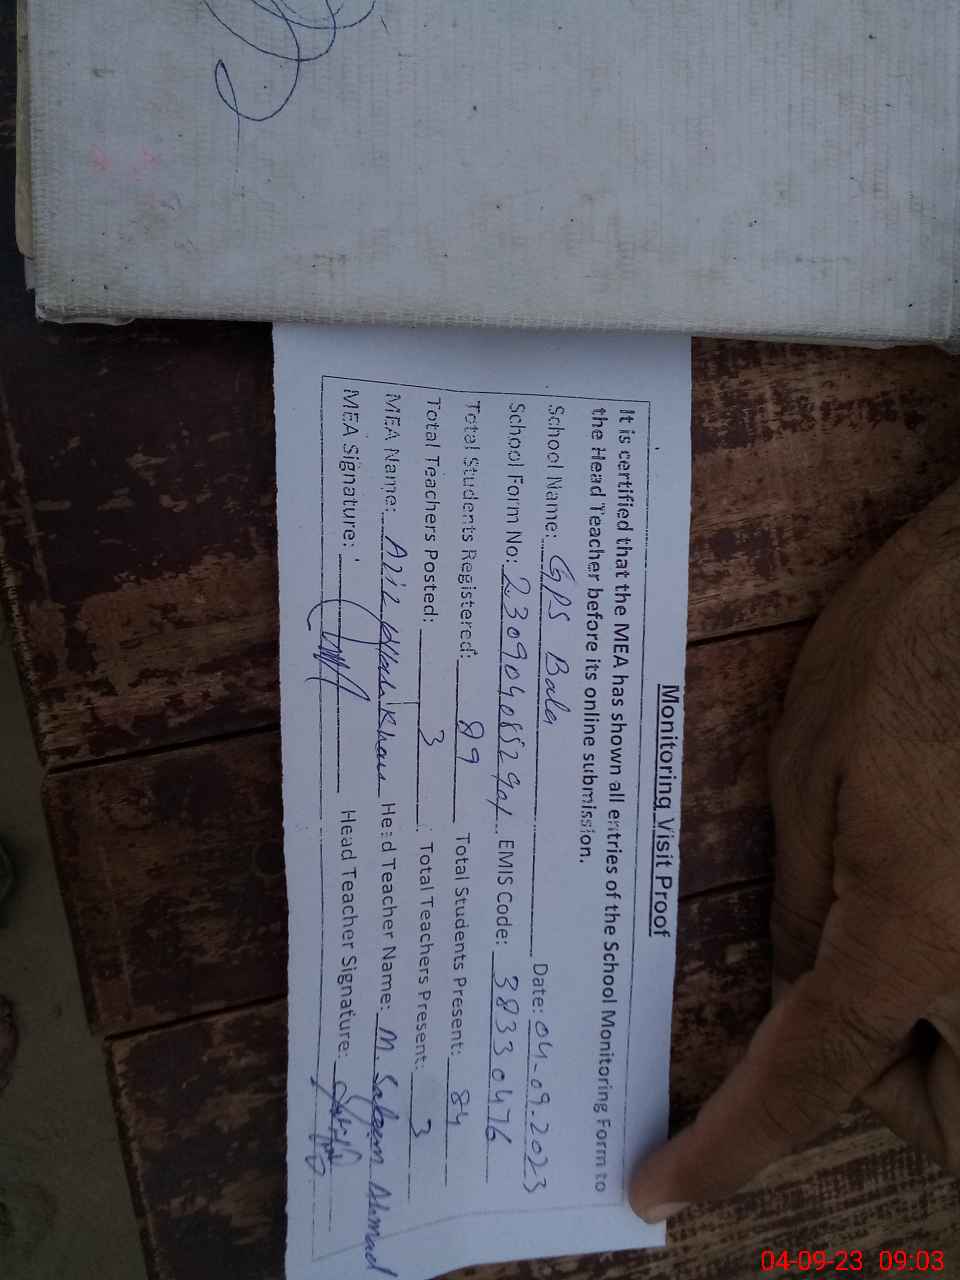 Monitoring Visit Proof
It is certified that the MEA has shown all entries of the School Monitoring Form to
the Head Teacher before its online submission.
School Name: GPS Bala Date: 04-09-2023
School Form No: EMIS Code: 38330476
Total Students Registered: 89 Total Students Present: 84
Total Teachers Posted: 3 Total Teachers Present: 3
MEA Name: Khan Head Teacher Name: M. Saleem Ahmad
MEA Signature: Head Teacher Signature:
04-09-23 09:03